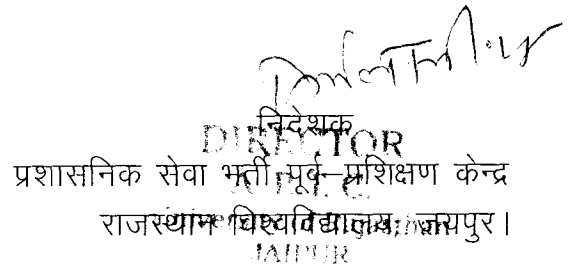 निदेशक
DIRECTOR
प्रशासनिक सेवा भर्ती पूर्व–प्रशिक्षण केन्द्र
राजस्थान विश्वविद्यालय, जयपुर।
JAIPUR